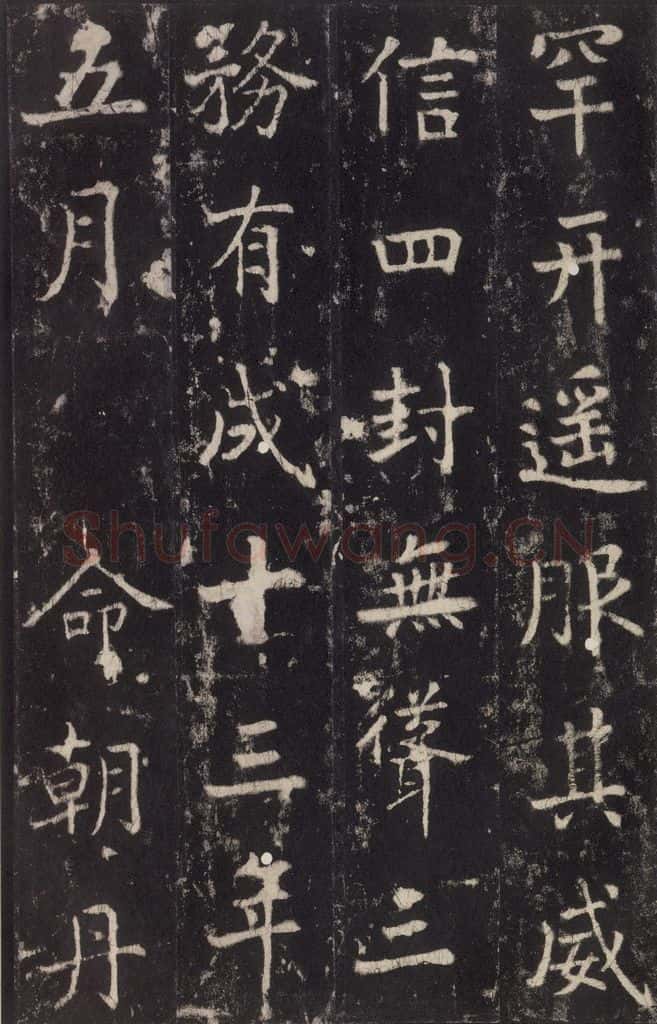 罕开遥服其威
信四封無聳三
務有成十三年
五月命朝丹
Shufawang.CN